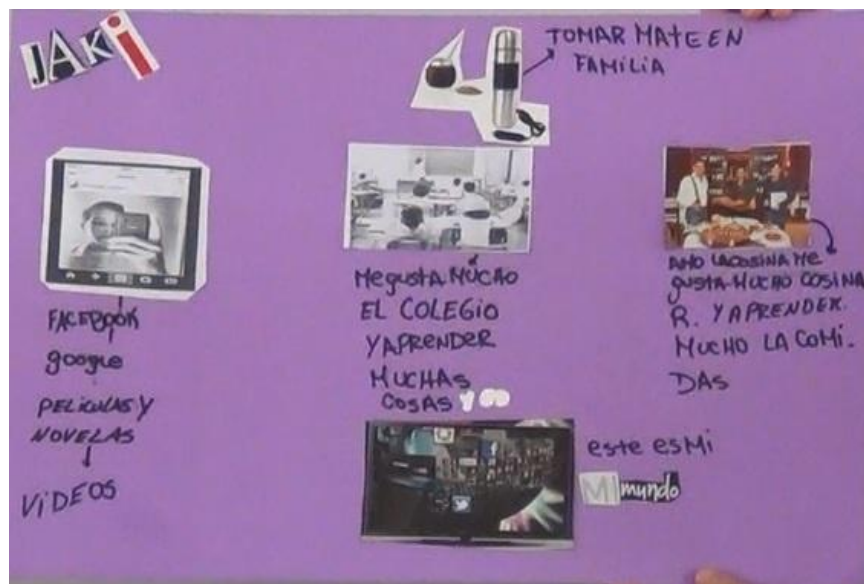 JAKi
TOMAR MATE EN
FAMiLiA
FACEBOOK
google
PELiCULAS Y
NOVELAS
ViDEOS
Me gusta MUCHO
EL COLEGIO
Y APRENDER
MUCHAS
COSAS Y
AMO LA COSINA ME
gusta MUCHO COSINA
R. Y APRENDER.
MUCHO LA COMi-
DAS
este es Mi
Mi mundo